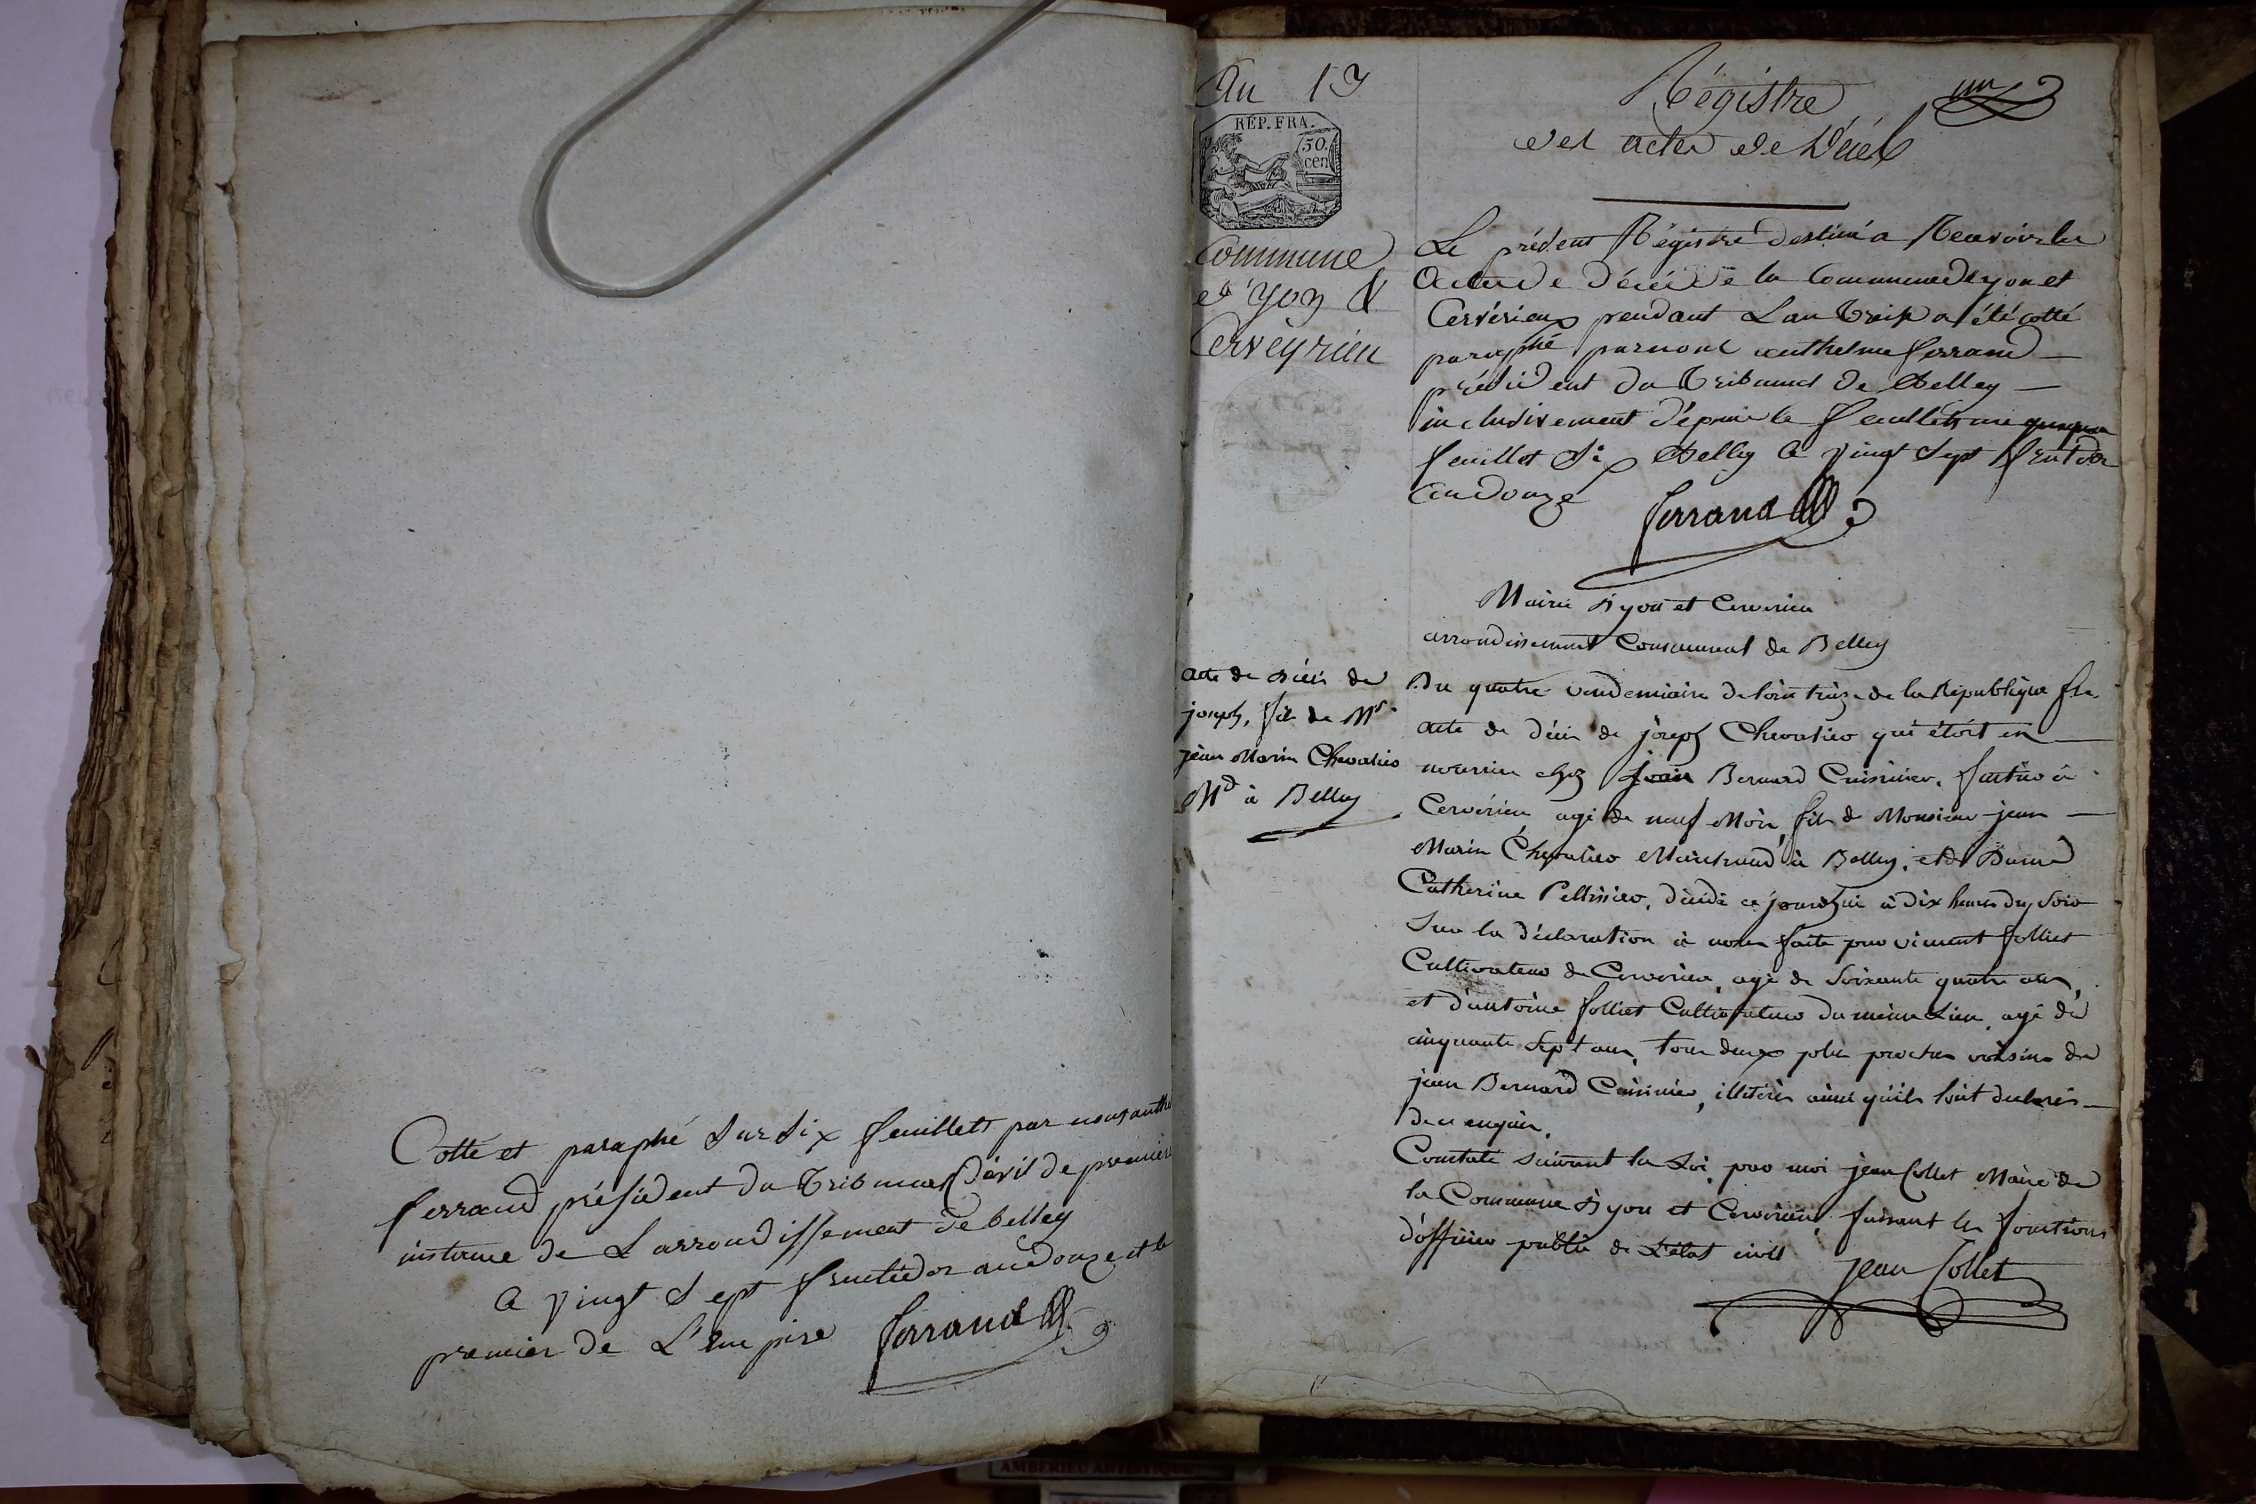 Cotté et paraphé sur six feuillets par nous anthe
ferrand président du tribunal civil de premiere
instance de Larrondissement de belley
a vingt sept fructidor an douze et le
premier de L'Empire ferrand
An 13
REP. FRA.
50. cen
Commune
d'yon &
Cerveyrieu
Régistre
un
des actes de Décés
Le présent Régistre destiné a Recevoir les
actes de Décés de la Commune dyon et
Cervérieu pendant Lan treize a été cotté
paraphé par nous anthelme ferrand
président du tribunal de Belley
inclusivement dépuis le feuillet un jusquau
feuillet six Belley le vingt sept fructidor
an douze
ferrand
Mairie d'yon et Cervérieu
arrondissement Communal de Belley
acte de décés de
joseph, fils de Mr.
jean Marin Chevalier
Md à Belley
Du quatre vendemiaire de l'an treize de la République fse
acte de décés de joseph Chevalier qui étoit en
nourrice chez jean Bernard Cuisinier, à
Cervérieu agé de neuf Mois, fils de Monsieur jean
Marin Chevalier Marchand à Belley, et de Dame
Catherine Pellissier, décédé ce jourdhui à dix heures du soir
Sur la déclaration à nous faite par vincent folliet
Cultivateur de Cervérieu, agé de soixante quatre ans,
et d'antoine folliet Cultivateur du même Lieu, agé de
cinquante sept ans, tous deux plus proches voisins de
jean Bernard Cuisinier, illitérés ainsi qu'ils l'ont declarés
de ce enquis.
Constaté suivant la Loi, par moi jean Collet Maire de
la Commune d'yon et Cervérieu, faisant les fonctions
d'officier public de L'état civil
jean Collet